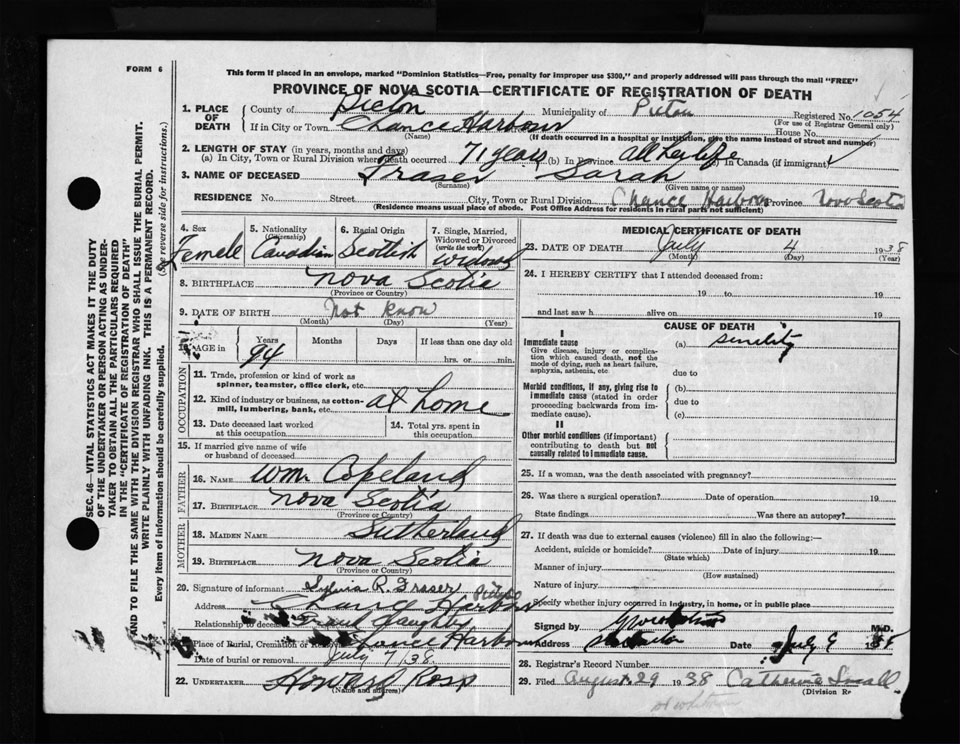 FORM 6
This form if placed in an envelope, marked "Dominion Statistics—Free, penalty for improper use $300," and properly addressed will pass through the mail "FREE"
PROVINCE OF NOVA SCOTIA—CERTIFICATE OF REGISTRATION OF DEATH
1. PLACE OF DEATH County of Pictou Municipality of Pictou Registered No. 1054
(For use of Registrar General only)
If in City or Town Chance Harbour House No.
(Name) (If death occurred in a hospital or institution, give the name instead of street and number)
2. LENGTH OF STAY (in years, months and days)
(a) In City, Town or Rural Division where death occurred 71 years (b) In Province all her life (c) In Canada (if immigrant)
3. NAME OF DECEASED Fraser Sarah
(Surname) (Given name or names)
RESIDENCE No. Street City, Town or Rural Division Chance Harbour Province Nova Scotia
(Residence means usual place of abode. Post Office Address for residents in rural parts not sufficient)
4. Sex Female
5. Nationality (Citizenship) Canadian
6. Racial Origin Scottish
7. Single, Married, Widowed or Divorced (write the word) widow
8. BIRTHPLACE Nova Scotia
(Province or Country)
9. DATE OF BIRTH Not Know
(Month) (Day) (Year)
AGE in Years 94 Months Days If less than one day old
hrs. or min.
OCCUPATION
11. Trade, profession or kind of work as spinner, teamster, office clerk, etc.
12. Kind of industry or business, as cotton-mill, lumbering, bank, etc. at home
13. Date deceased last worked at this occupation
14. Total yrs. spent in this occupation
15. If married give name of wife or husband of deceased
FATHER
16. NAME Wm Copeland
17. BIRTHPLACE Nova Scotia
(Province or Country)
MOTHER
18. MAIDEN NAME Sutherland
19. BIRTHPLACE Nova Scotia
(Province or Country)
20. Signature of informant Sylvia R. Fraser
Address Harbour
Relationship to deceased daughter
Place of Burial, Cremation or Removal Chance Harbour
Date of burial or removal July 7/38
22. UNDERTAKER Howard Ross
(Name and address)
MEDICAL CERTIFICATE OF DEATH
23. DATE OF DEATH July 4 1938
(Month) (Day) (Year)
24. I HEREBY CERTIFY that I attended deceased from:
19 to 19
and last saw h alive on 19
CAUSE OF DEATH
I
Immediate cause (a) senility
Give disease, injury or complication which caused death, not the mode of dying, such as heart failure, asphyxia, asthenia, etc.
due to
Morbid conditions, if any, giving rise to immediate cause (stated in order proceeding backwards from immediate cause).
(b)
due to
(c)
II
Other morbid conditions (if important) contributing to death but not causally related to immediate cause.
25. If a woman, was the death associated with pregnancy?
26. Was there a surgical operation? Date of operation 19
State findings Was there an autopsy?
27. If death was due to external causes (violence) fill in also the following:—
Accident, suicide or homicide? Date of injury 19
(State which)
Manner of injury
(How sustained)
Nature of injury
Specify whether injury occurred in industry, in home, or in public place
Signed by M.D.
Address Date July 9
28. Registrar's Record Number
29. Filed August 29 1938 Catherine Small
(Division R
SEC. 46—VITAL STATISTICS ACT MAKES IT THE DUTY
OF THE UNDERTAKER OR PERSON ACTING AS UNDER-
TAKER TO OBTAIN ALL THE PARTICULARS REQUIRED
IN THE "CERTIFICATE OF REGISTRATION OF DEATH"
AND TO FILE THE SAME WITH THE DIVISION REGISTRAR WHO SHALL ISSUE THE BURIAL PERMIT.
WRITE PLAINLY WITH UNFADING INK. THIS IS A PERMANENT RECORD.
Every item of information should be carefully supplied. (See reverse side for instructions.)